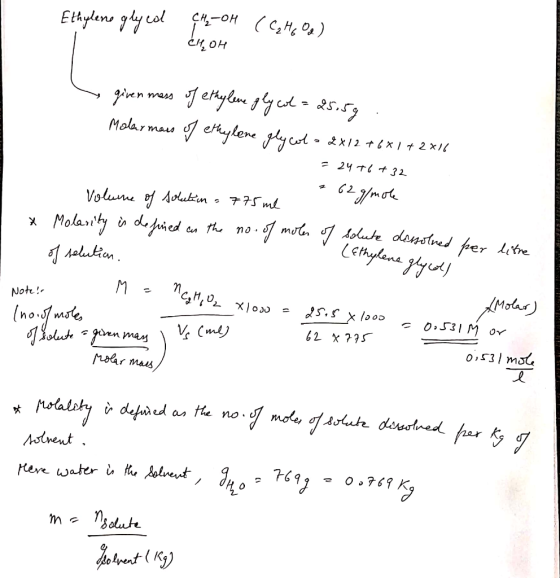 Ethylene glycol CH₂-OH (C₂H₆O₂)
CH₂OH
given mass of ethylene glycol = 25.5g.
Molar mass of ethylene glycol = 2×12 + 6×1 + 2×16
= 24+6+32
= 62 g/mole
Volume of solution = 775 ml
* Molarity is defined as the no. of moles of solute dissolved per litre
(Ethylene glycol)
of solution.
Note:-
(no. of moles of solute = given mass / Molar mass)
M = nC₂H₆O₂ / Vs (ml) × 1000 = 25.5 × 1000 / 62 × 775 = 0.531 M or
(Molar)
0.531 mole / l
* Molality is defined as the no. of moles of solute dissolved per Kg of
solvent.
Here water is the solvent, gH₂O = 769g = 0.769 Kg
m = nsolute / gsolvent (Kg)